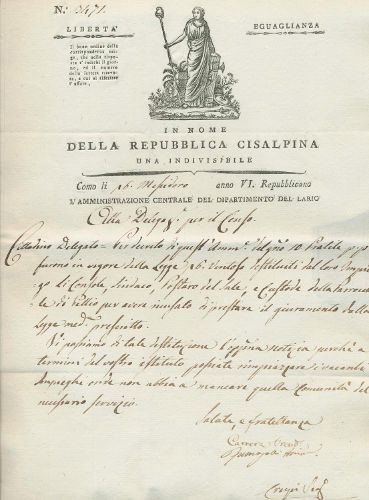 N.° 3471.
LIBERTA'
EGUAGLIANZA
Il buon ordine della
corrispondenza esige, che nella risposta
si indichi il giorno, ed il numero
della lettera
a cui si riferisce
l'affare.
IN NOME
DELLA REPUBBLICA CISALPINA
UNA INDIVISIBILE
Como li 26. Messidoro anno VI. Repubblicano
L'AMMINISTRAZIONE CENTRALE DEL DIPARTIMENTO DEL LARIO
Alla Delegaz. per il Censo.
Cittadino Delegato = Per decreto di quest' Amm. del giorno 10 Pratile
furono in vigore della Legge 26. Ventoso destituiti dal loro
di Console, Sindaco, del Sale, e Custode della
le di per avere ricusato di prestare il giuramento dalla
Legge med. prescritto.
Vi passiamo di tale destituzione notizia perchè a
termini del vostro istituto possiate rimpiazzare i vacanti
impieghi onde non abbia a mancare quella Comunità del
necessario servizio.
Salute, e fratellanza